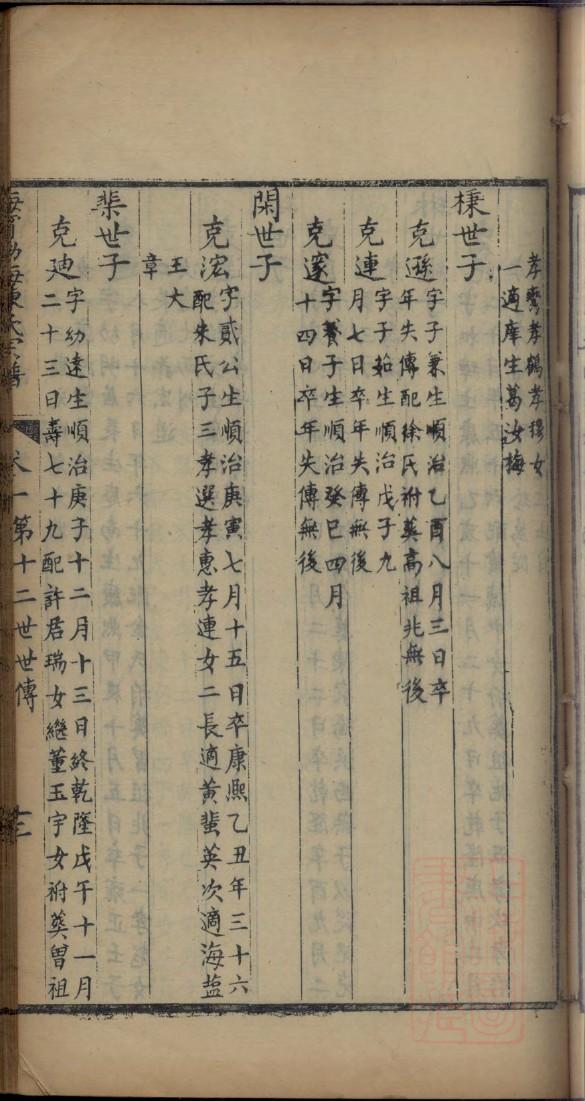 孝鸞孝鶴孝穆女
一適庠生葛汝梅
棅世子
克遜
字子兼生順治乙酉八月三日卒
年失傳配徐氏祔葬高祖兆無後
克連
字子茹生順治戊子九
月七日卒年失傳無後
克邃
字養子生順治癸巳四月
十四日卒年失傳無後
閑世子
克浤
字貳公生順治庚寅七月十五日卒康熙乙丑年三十六
配朱氏子三孝選孝惠孝連女二長適黃蜚英次適海盐
王大
章
棐世子
克迪
字幼達生順治庚子十二月十三日終乾隆戊午十一月
二十三日壽七十九配許居瑞女繼董玉宇女祔葬曾祖
海寧渤海陳氏宗譜
卷一第十二世世傳